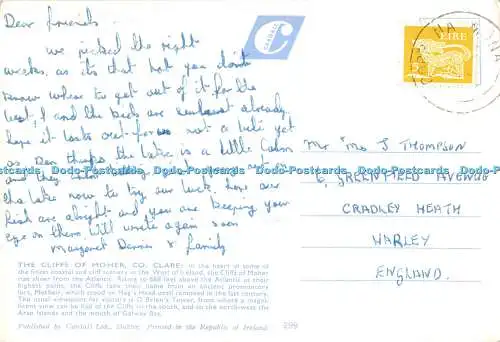 Dear friends
we picked the right
weeks, as its that hot you dont
know where to get out of it for the
best, & and the beds are sunburnt already,
hope it lasts out. for not a bite yet
as Dan thinks the lake is a little calm
and they
the lake now to try our luck. hope our
fish are alright and you are keeping your
eye on them will write again soon
Margaret Dennis & family
Mr Mrs J THOMPSON
6, GREENFIELD AVENUE
CRADLEY HEATH
WARLEY
ENGLAND.
CARDALL
ÉIRE
Dodo-Postcards Dodo-Postcards Dodo-Postcards Dodo-Postcards Dodo-Postcards
THE CLIFFS OF MOHER, CO. CLARE: In the heart of some of
the finest coastal and cliff scenery in the West of Ireland, the Cliffs of Moher
rise sheer from the Atlantic. Rising to 668 feet above the Atlantic at their
highest point, the Cliffs take their name from an ancient promontory
fort, Mothair, which stood on Hag's Head until removed in the last century.
The usual viewpoint for visitors is O'Brien's Tower, from where a magnif-
icent view can be had of the Cliffs to the south, and to the north-west the
Aran Islands and the mouth of Galway Bay.
Published by Cardall Ltd., Dublin. Printed in the Republic of Ireland.
299